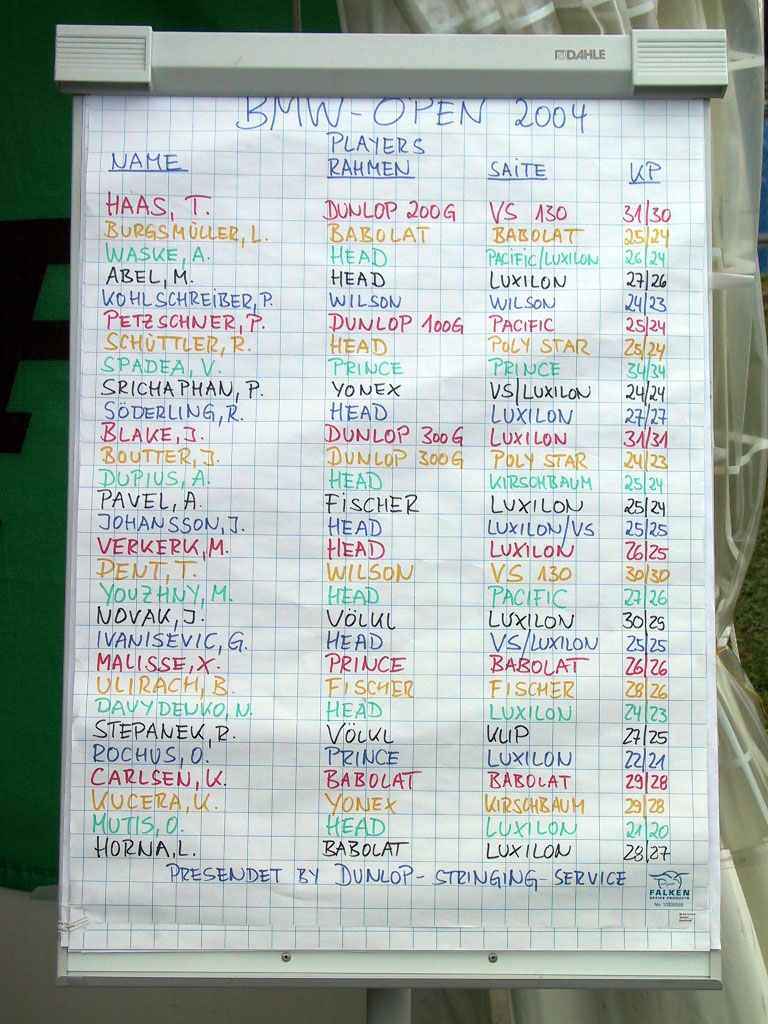 DAHLE
BMW-OPEN 2004
PLAYERS
NAME RAHMEN SAITE KP
HAAS, T. DUNLOP 200G VS 130 31/30
BURGSMÜLLER, L. BABOLAT BABOLAT 25/24
WASKE, A. HEAD PACIFIC/LUXILON 26/24
ABEL, M. HEAD LUXILON 27/26
KOHLSCHREIBER, P. WILSON WILSON 24/23
PETZSCHNER, P. DUNLOP 100G PACIFIC 25/24
SCHÜTTLER, R. HEAD POLY STAR 25/24
SPADEA, V. PRINCE PRINCE 34/34
SRICHAPHAN, P. YONEX VS/LUXILON 24/24
SÖDERLING, R. HEAD LUXILON 27/27
BLAKE, J. DUNLOP 300G LUXILON 31/31
BOUTTER, J. DUNLOP 300G POLY STAR 24/23
DUPIUS, A. HEAD KIRSCHBAUM 25/24
PAVEL, A. FISCHER LUXILON 25/24
JOHANSSON, J. HEAD LUXILON/VS 25/25
VERKERK, M. HEAD LUXILON 26/25
DENT, T. WILSON VS 130 30/30
YOUZHNY, M. HEAD PACIFIC 27/26
NOVAK, J. VÖLKL LUXILON 30/29
IVANISEVIC, G. HEAD VS/LUXILON 25/25
MALISSE, X. PRINCE BABOLAT 26/26
ULIRACH, B. FISCHER FISCHER 28/26
DAVYDENKO, N. HEAD LUXILON 24/23
STEPANEK, R. VÖLKL KLIP 27/25
ROCHUS, O. PRINCE LUXILON 22/21
CARLSEN, K. BABOLAT BABOLAT 29/28
KUCERA, K. YONEX KIRSCHBAUM 29/28
MUTIS, O. HEAD LUXILON 21/20
HORNA, L. BABOLAT LUXILON 28/27
PRESENDET BY DUNLOP-STRINGING-SERVICE
FALKEN
OFFICE PRODUCTS